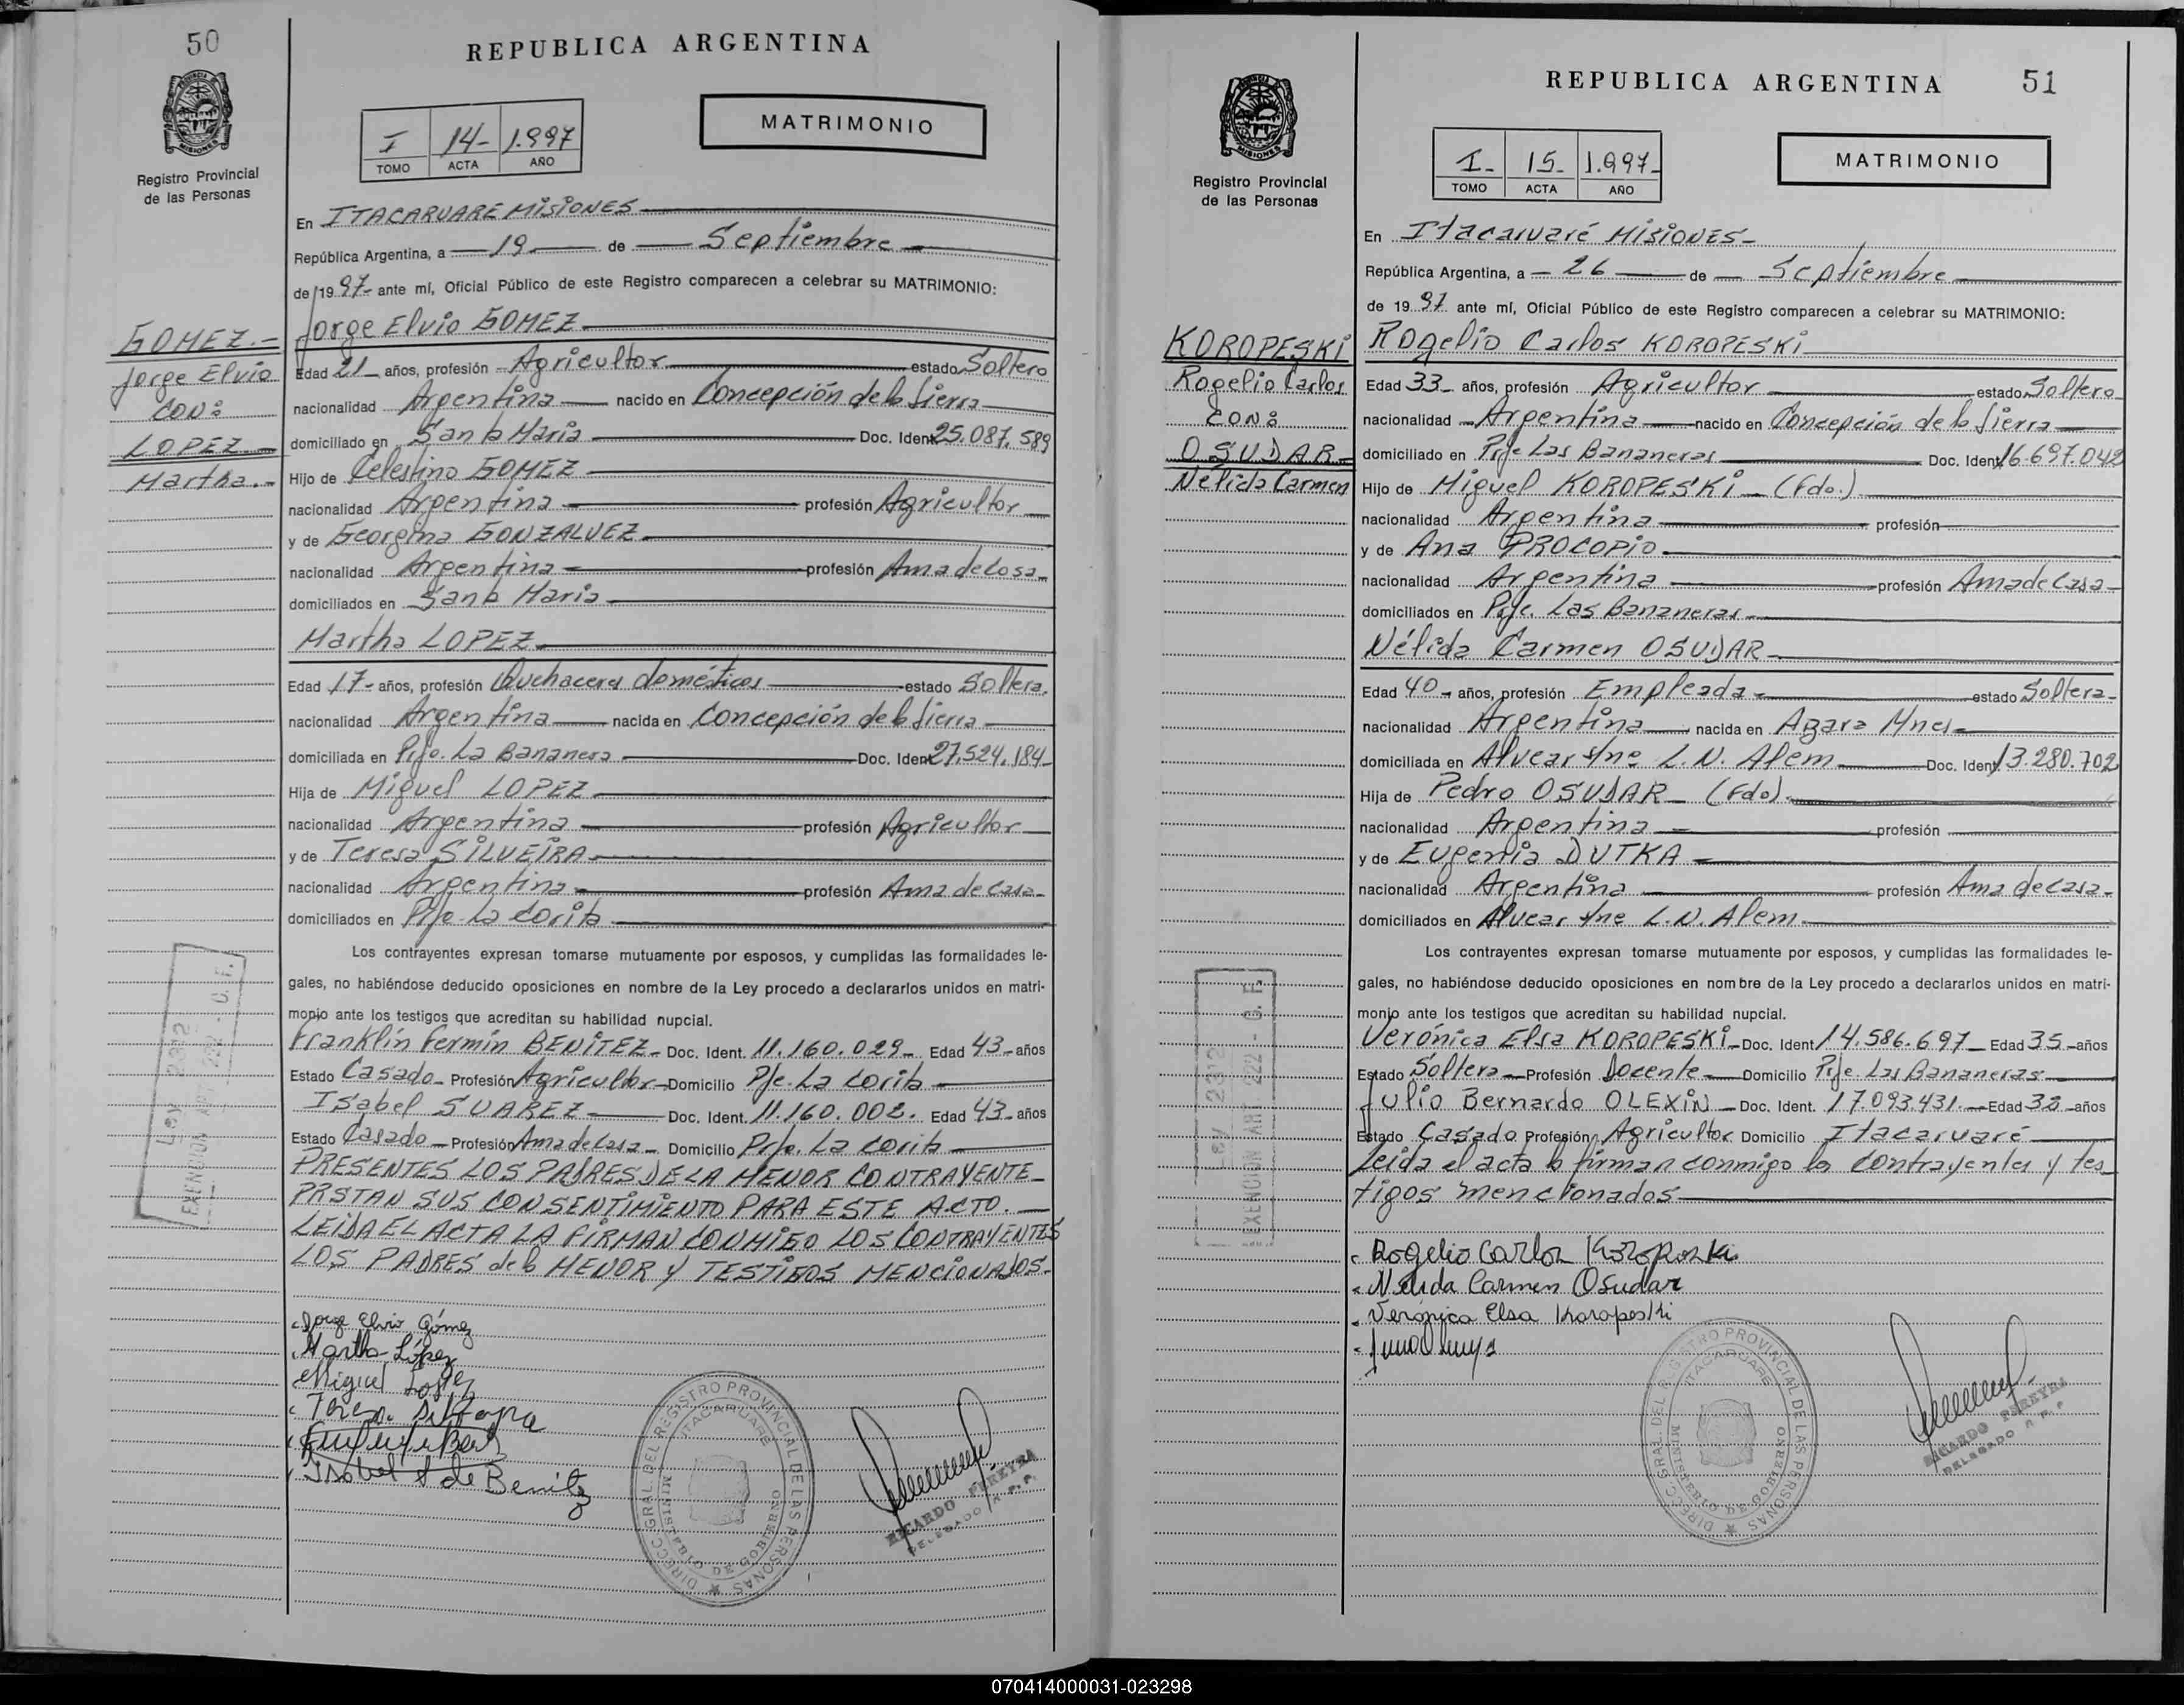 50
REPUBLICA ARGENTINA
MISIONES
Registro Provincial
de las Personas
I 14- 1.997
TOMO ACTA AÑO
MATRIMONIO
En ITACARUARE MISIONES
República Argentina, a 19 de Septiembre
de 1997- ante mí, Oficial Público de este Registro comparecen a celebrar su MATRIMONIO:
GOMEZ.-
Jorge Elvio
CON:
LOPEZ
Martha.-
Jorge Elvio GOMEZ
Edad 21 años, profesión Agricultor estado Soltero
nacionalidad Argentina nacido en Concepción de la Sierra
domiciliado en Santa María Doc. Ident. 25.087.589
Hijo de Celestino GOMEZ
nacionalidad Argentina profesión Agricultor
y de Georgina GONZALVEZ
nacionalidad Argentina profesión Ama de Casa
domiciliados en Santa María
Martha LOPEZ
Edad 17- años, profesión Quehaceres domésticos estado Soltera.
nacionalidad Argentina nacida en Concepción de la Sierra
domiciliada en Pje. La Bananera Doc. Ident. 27.524.184
Hija de Miguel LOPEZ
nacionalidad Argentina profesión Agricultor
y de Teresa SILVEIRA
nacionalidad Argentina profesión Ama de Casa
domiciliados en Pje. La Corita
Los contrayentes expresan tomarse mutuamente por esposos, y cumplidas las formalidades le-
gales, no habiéndose deducido oposiciones en nombre de la Ley procedo a declararlos unidos en matri-
monio ante los testigos que acreditan su habilidad nupcial.
Franklin Fermin BENITEZ Doc. Ident. 11.160.029 Edad 43 años
Estado Casado Profesión Agricultor Domicilio Pje. La Corita
Isabel SUAREZ Doc. Ident. 11.160.002. Edad 43 años
Estado Casado Profesión Ama de Casa Domicilio Pje. La Corita
PRESENTES LOS PADRES DE LA MENOR CONTRAYENTE
PRSTAN SUS CONSENTIMIENTO PARA ESTE ACTO.
LEIDA EL ACTA LA FIRMAN CONMIGO LOS CONTRAYENTES
LOS PADRES de la MENOR Y TESTIGOS MENCIONADOS.
Ley 2312
EXENCION ART 222 - C. F.
Jorge Elvio Gómez
Martha López
Miguel López
Teresa
Isabel S de Benitez
DIRECC. GRAL. DEL REGISTRO PROVINCIAL DE LAS PERSONAS
ITACARUARE
MINISTERIO DE GOBIERNO
RICARDO PEREYRA
DELEGADO R. P. P.
51
REPUBLICA ARGENTINA
MISIONES
Registro Provincial
de las Personas
I- 15- 1.997-
TOMO ACTA AÑO
MATRIMONIO
En Itacaruaré MISIONES-
República Argentina, a 26 de Septiembre
de 1997 ante mí, Oficial Público de este Registro comparecen a celebrar su MATRIMONIO:
KOROPESKI
Rogelio Carlos
CON:
OSUDAR
Nélida Carmen
Rogelio Carlos KOROPESKI
Edad 33 años, profesión Agricultor estado Soltero
nacionalidad Argentina nacido en Concepción de la Sierra
domiciliado en Pje Las Bananeras Doc. Ident. 16.697.042
Hijo de Miguel KOROPESKI (Fdo.)
nacionalidad Argentina profesión
y de Ana PROCOPIO
nacionalidad Argentina profesión Ama de Casa
domiciliados en Pje. Las Bananeras
Nélida Carmen OSUDAR
Edad 40 años, profesión Empleada estado Soltera
nacionalidad Argentina nacida en Azara Mnes
domiciliada en Alvear s/nº L.N. Alem Doc. Ident. 13.280.702
Hija de Pedro OSUDAR (Fdo)
nacionalidad Argentina profesión
y de Eugenia DUTKA
nacionalidad Argentina profesión Ama de Casa
domiciliados en Alvear s/nº L.N. Alem
Los contrayentes expresan tomarse mutuamente por esposos, y cumplidas las formalidades le-
gales, no habiéndose deducido oposiciones en nombre de la Ley procedo a declararlos unidos en matri-
monio ante los testigos que acreditan su habilidad nupcial.
Verónica Elsa KOROPESKI Doc. Ident. 14.586.697 Edad 35 años
Estado Soltera Profesión Docente Domicilio Pje. Las Bananeras
Julio Bernardo OLEXIN Doc. Ident. 17.093.431. Edad 32 años
Estado Casado Profesión Agricultor Domicilio Itacaruaré
Leida el acta la firman conmigo los contrayentes y tes
tigos mencionados
Ley 2312
EXENCION ART. 222 - C. F.
Rogelio Carlos Koropeski
Nélida Carmen Osudar
Verónica Elsa Koropeski
DIRECC. GRAL. DEL REGISTRO PROVINCIAL DE LAS PERSONAS
ITACARUARE
MINISTERIO DE GOBIERNO
RICARDO PEREYRA
DELEGADO R. P. P.
070414000031-023298